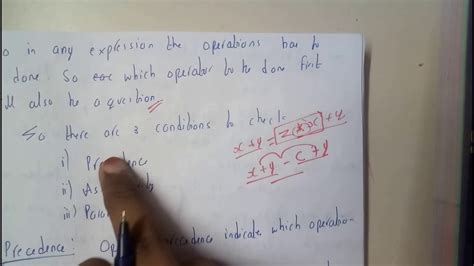 o in any expression the operations has to
done. So which operator to be done first
ll also be a question
So there are 3 conditions to check
x+y = z(*)x+y
i) Precedence
x+y - c+y
ii) As
iii) Pa
Precedence: Op precedence indicate which operation